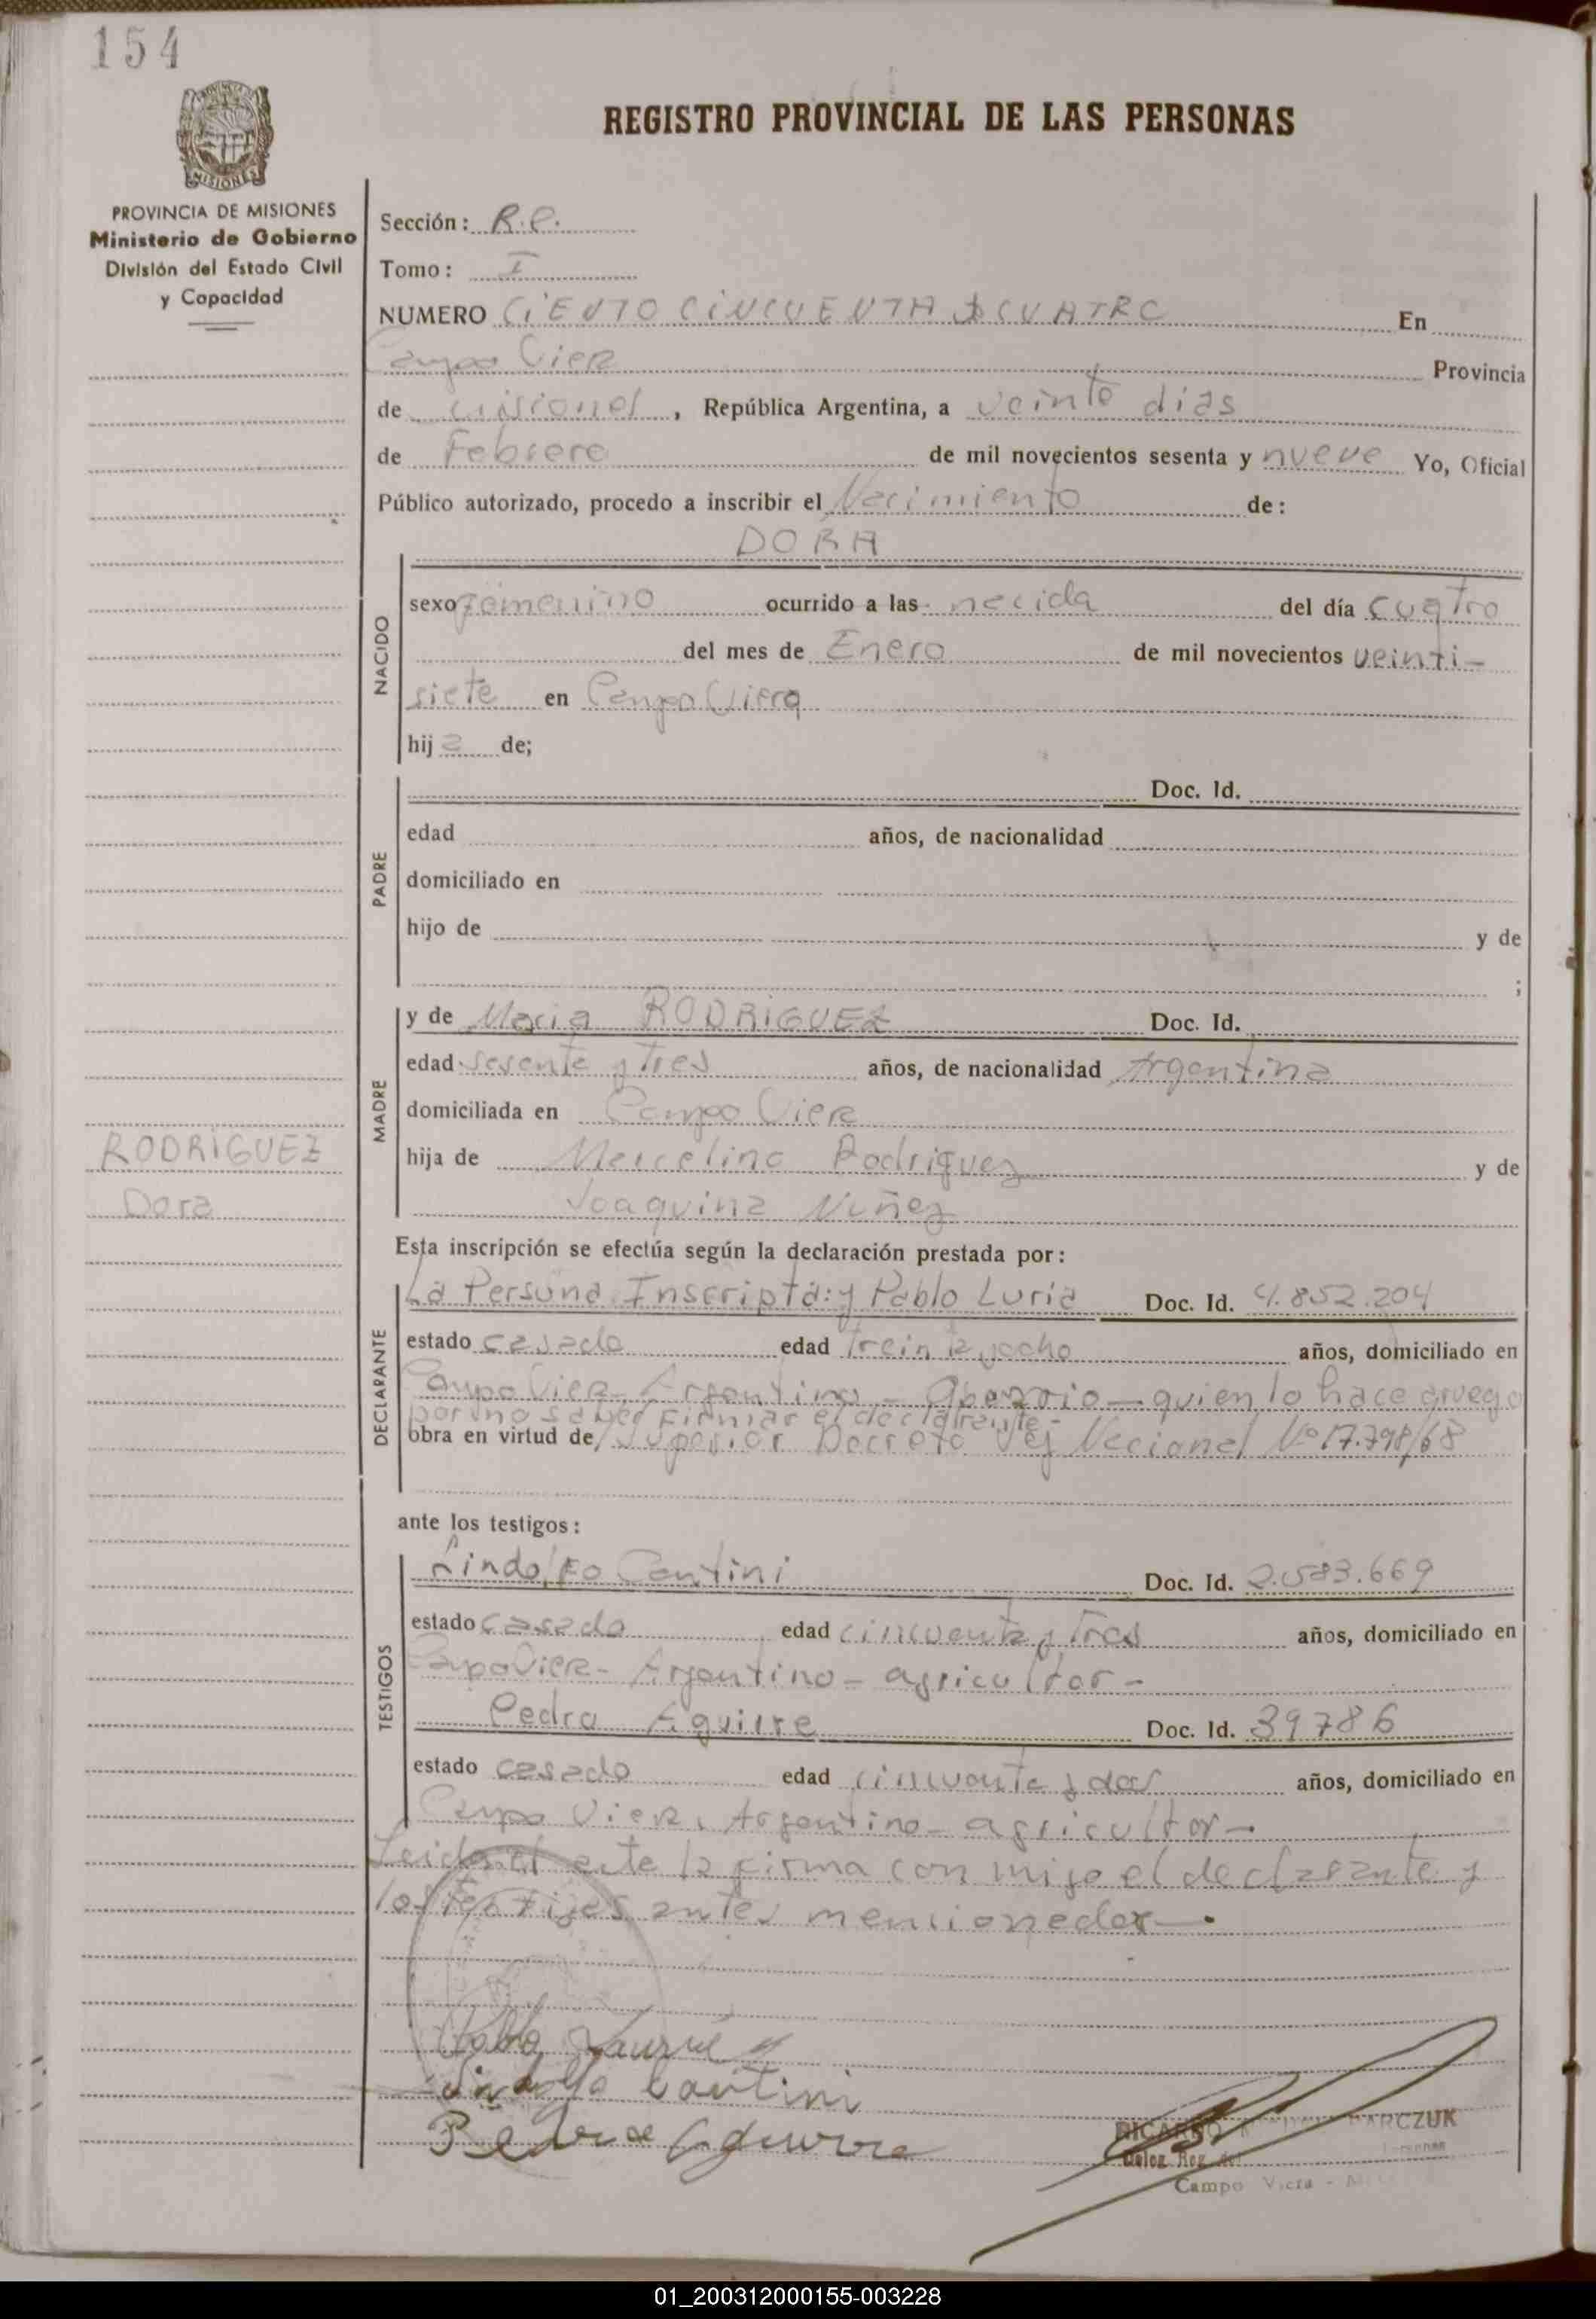 154
REGISTRO PROVINCIAL DE LAS PERSONAS
MISIONES
PROVINCIA DE MISIONES
Ministerio de Gobierno
División del Estado Civil
y Capacidad
Sección: R.C.
Tomo: I
NUMERO CIENTO CINCUENTA Y CUATRO En
Campo Viera Provincia
de Misiones, República Argentina, a veinte dias
de Febrero de mil novecientos sesenta y nueve Yo, Oficial
Público autorizado, procedo a inscribir el Nacimiento de:
DORA
NACIDO
sexo femenino ocurrido a las nacida del día cuatro
del mes de Enero de mil novecientos veinti-
siete en Campo Viera
hija de;
PADRE
Doc. Id.
edad años, de nacionalidad
domiciliado en
hijo de y de
;
MADRE
y de Maria RODRIGUEZ Doc. Id.
edad sesenta y tres años, de nacionalidad Argentina
domiciliada en Campo Viera
hija de Marcelino Rodriguez y de
Joaquina Nuñez
RODRIGUEZ
Dora
Esta inscripción se efectúa según la declaración prestada por:
DECLARANTE
La Persona Inscripta: y Pablo Luria Doc. Id. 4.852.204
estado casado edad treinta y ocho años, domiciliado en
Campo Viera - Argentino - quien lo hace a ruego
por no saber firmar el declarante -
obra en virtud de Superior Decreto Ley Nacional Nº 17.798/68
ante los testigos:
TESTIGOS
Lindolfo Cantini Doc. Id. 2.583.669
estado casado edad cincuenta y tres años, domiciliado en
Campo Viera - Argentino - agricultor -
Pedro Aguirre Doc. Id. 39786
estado casado edad cincuenta y dos años, domiciliado en
Campo Viera, Argentino - agricultor -
Leida el acta la firma con migo el declarante y
los testigos antes mencionados -.
Pablo
Lindolfo Cantini
Pedro Aguirre
RICARDO
Deleg. Reg. de
Campo Viera - M
01_200312000155-003228